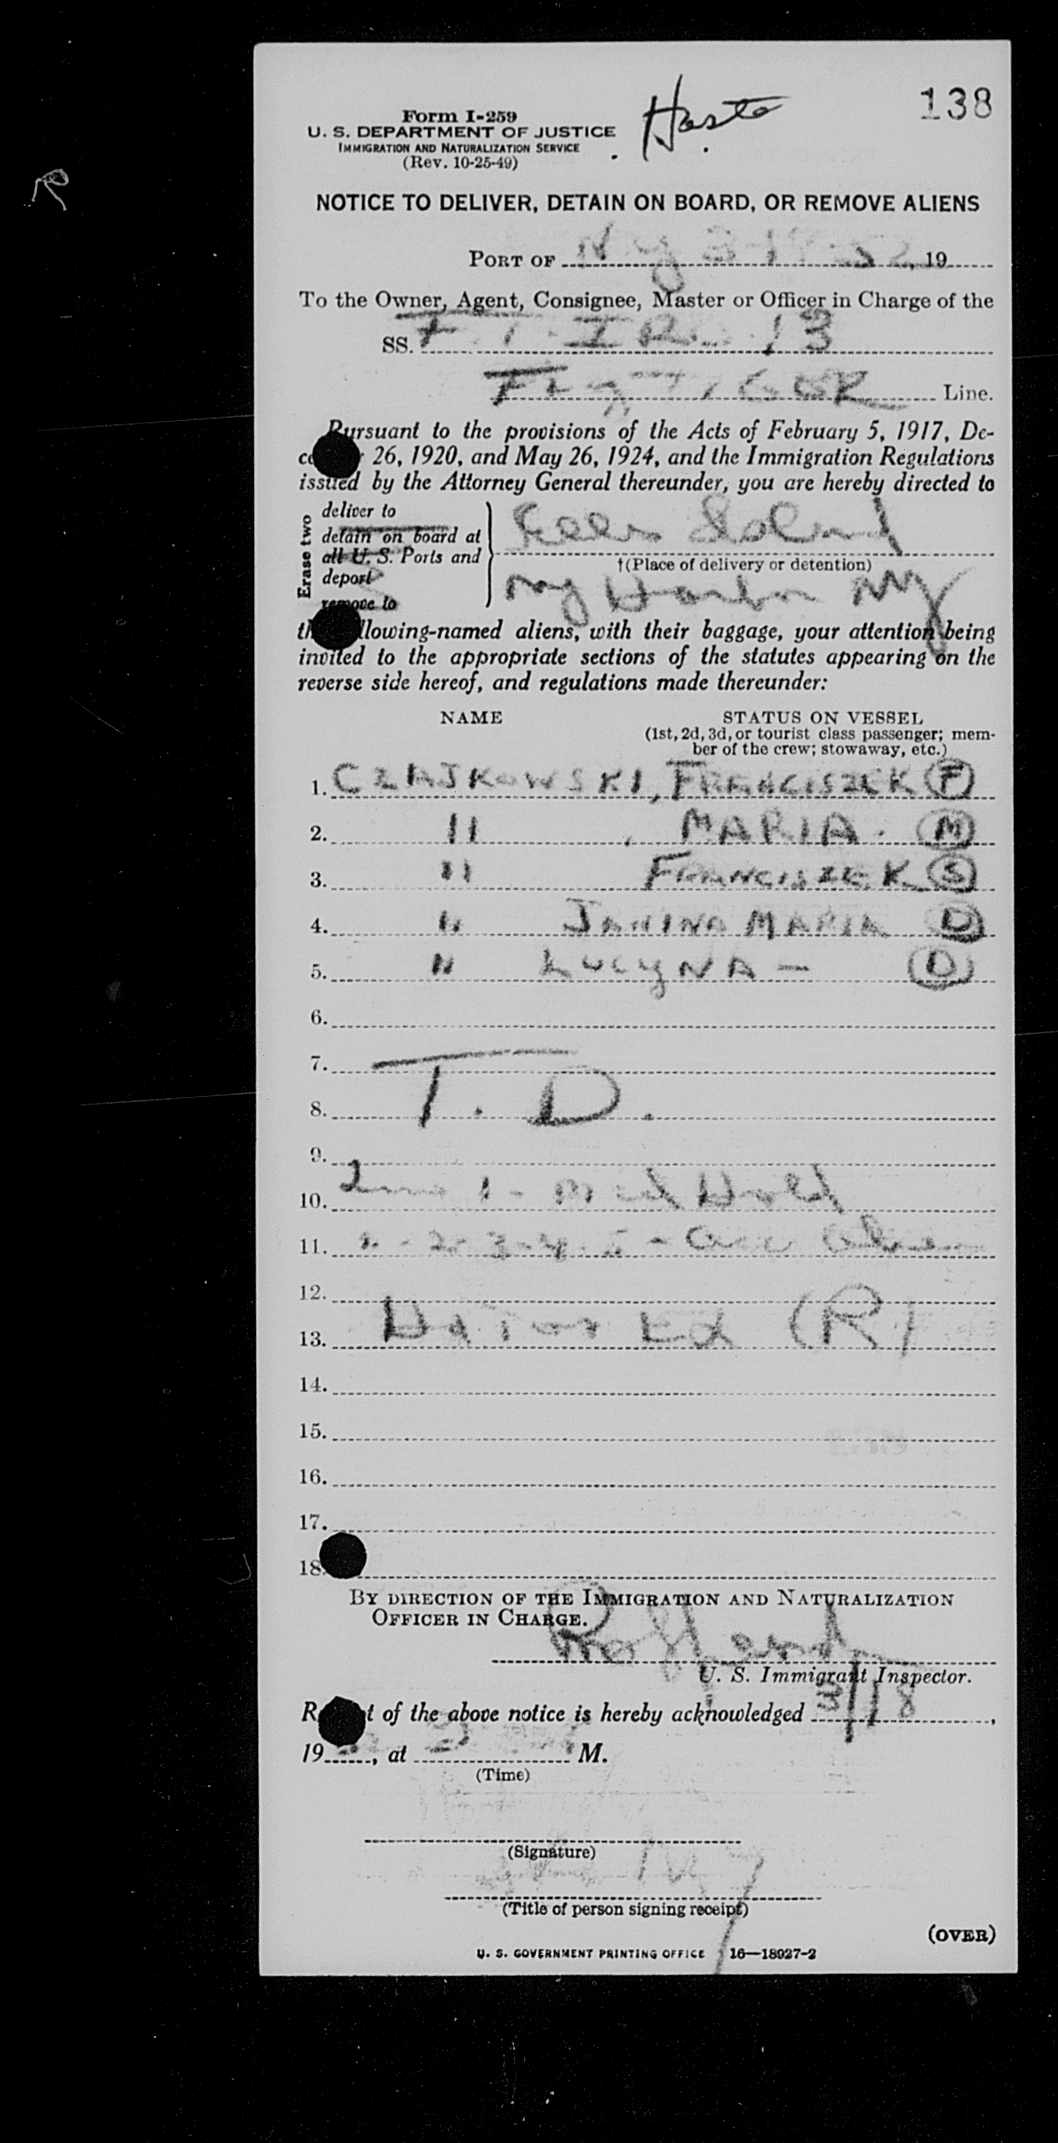 138
Form I-259
U. S. DEPARTMENT OF JUSTICE
IMMIGRATION AND NATURALIZATION SERVICE
(Rev. 10-25-49)
NOTICE TO DELIVER, DETAIN ON BOARD, OR REMOVE ALIENS
PORT OF NY 3-18-52, 19
To the Owner, Agent, Consignee, Master or Officer in Charge of the
SS. F.T. 13
FLY TIGER Line.
Pursuant to the provisions of the Acts of February 5, 1917, De-
26, 1920, and May 26, 1924, and the Immigration Regulations
issued by the Attorney General thereunder, you are hereby directed to
Erase two
deliver to
detain on board at
all U. S. Ports and
deport
remove to
Ellis Island
†(Place of delivery or detention)
NY Harbor NY
following-named aliens, with their baggage, your attention being
invited to the appropriate sections of the statutes appearing on the
reverse side hereof, and regulations made thereunder:
NAME STATUS ON VESSEL
(1st, 2d, 3d, or tourist class passenger; mem-
ber of the crew; stowaway, etc.)
1. CZAJKOWSKI, FRANCISZEK (F)
2. " , MARIA. (M)
3. " FRANCISZEK (S)
4. " JANINA MARIA (D)
5. " LUCYNA — (D)
6.
7.
8. T. D.
9.
10. Line 1 - Med Hold
11. 2-3-4-5 - Acc
12.
13. (R)
14.
15.
16.
17.
18.
BY DIRECTION OF THE IMMIGRATION AND NATURALIZATION
OFFICER IN CHARGE.
U. S. Immigrant Inspector.
of the above notice is hereby acknowledged 3/18,
19, at M.
(Time)
(Signature)
(Title of person signing receipt)
(OVER)
U. S. GOVERNMENT PRINTING OFFICE 16—18927-2